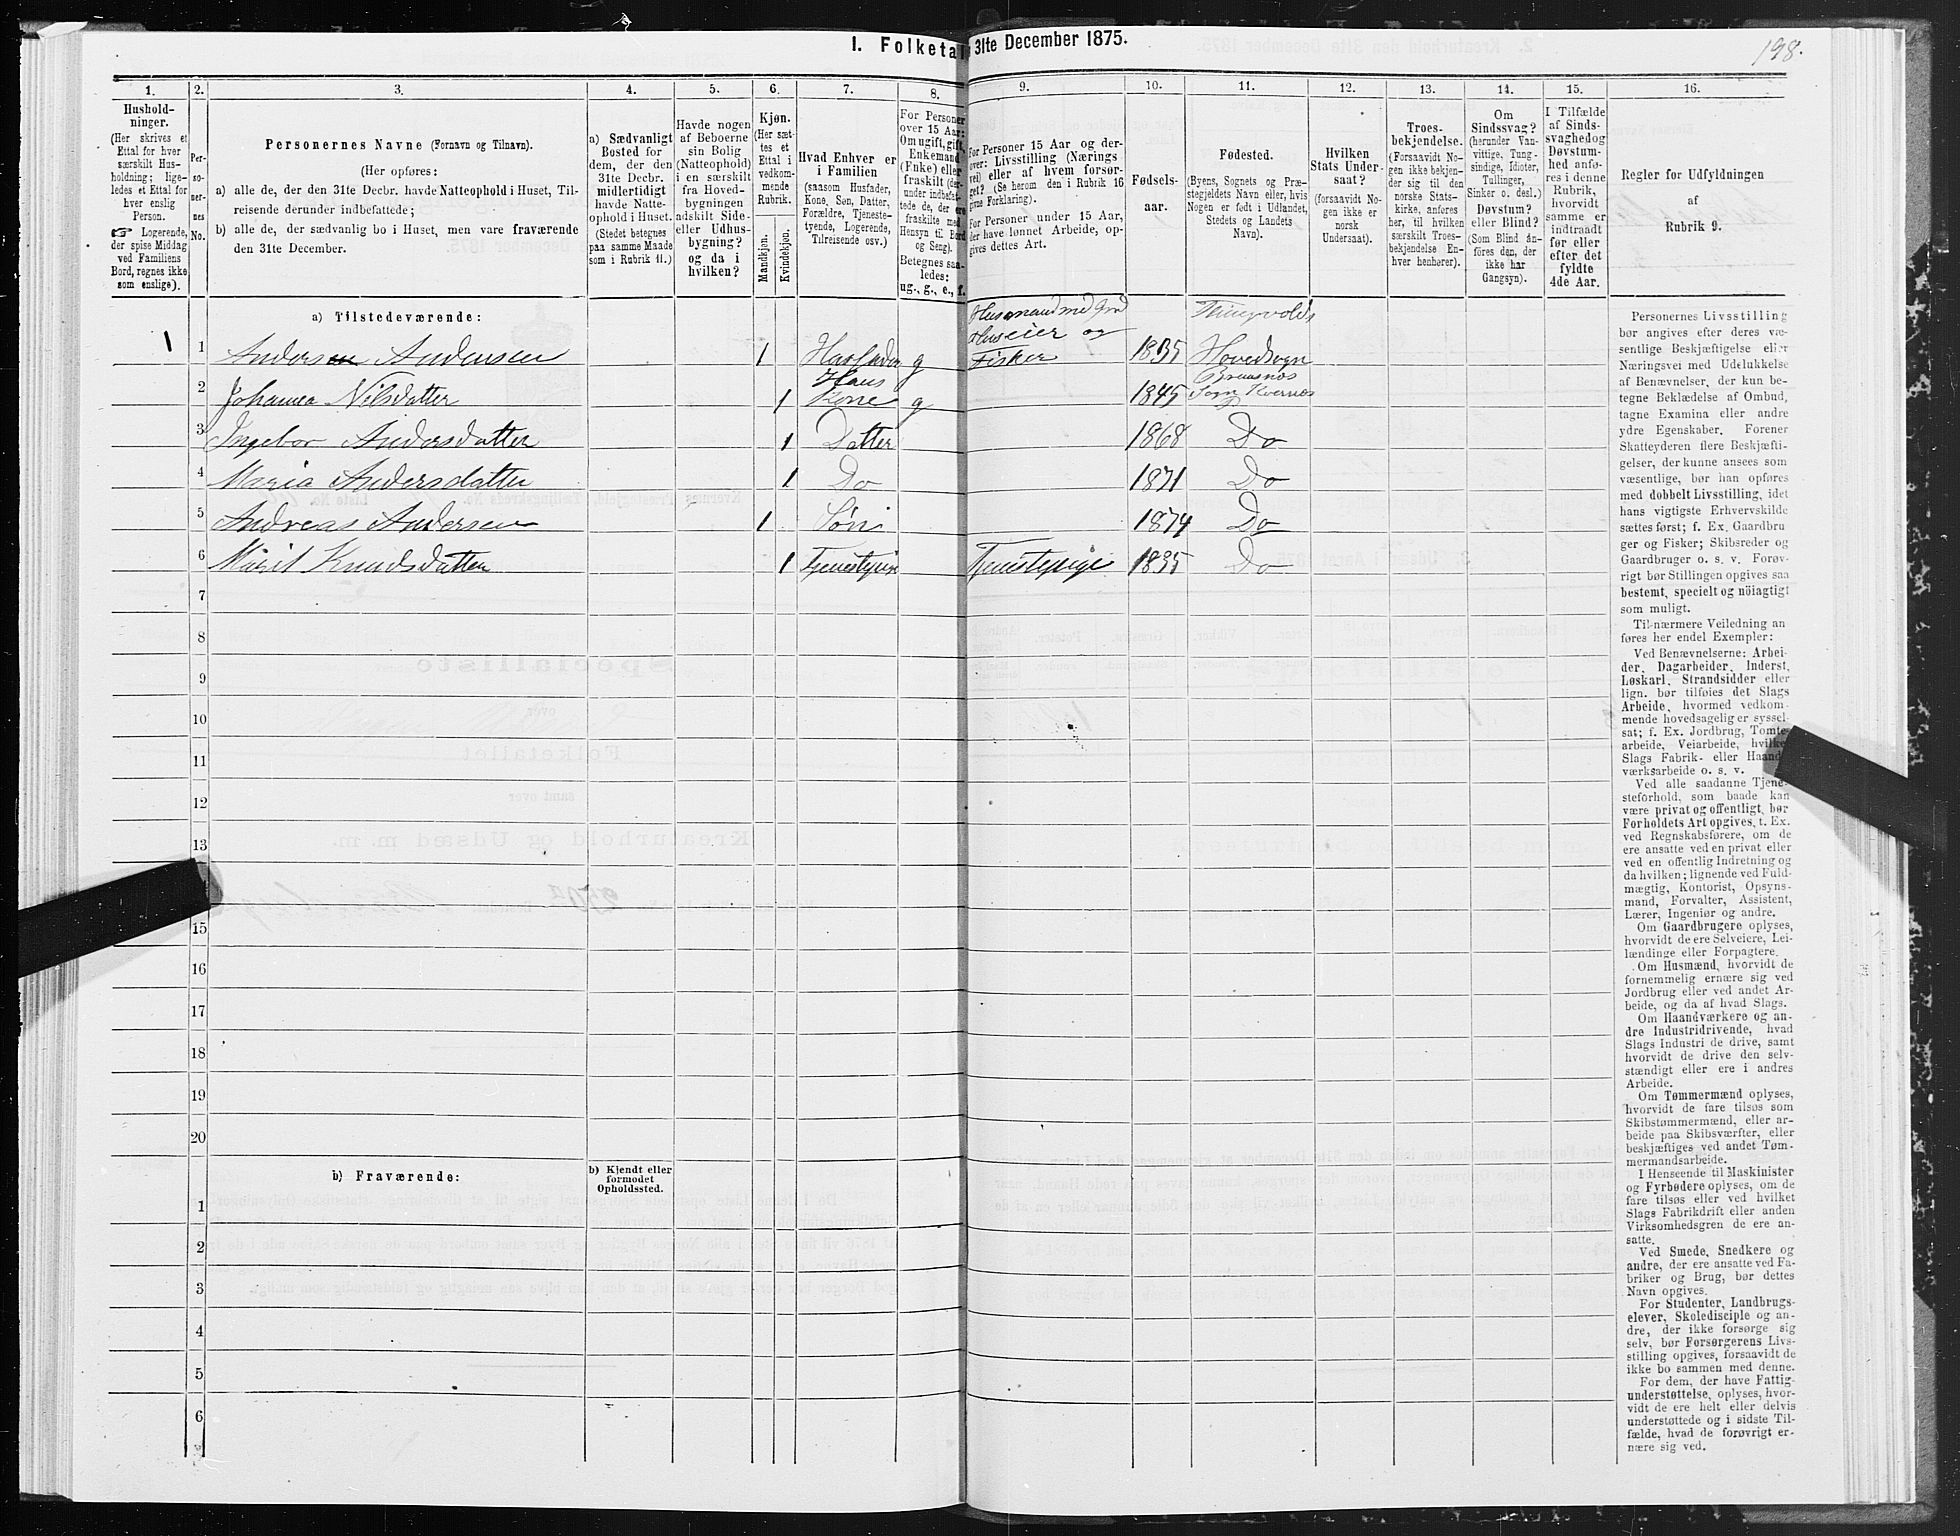 I. Folketal 31te December 1875.
198.
1.
2.
3.
4.
5.
6.
7.
8.
9.
10.
11.
12.
13.
14.
15.
16.
Hushold-
ninger.
(Her skrives et
Ettal for hver
særskilt Hus-
holdning; lige-
ledes et Ettal for
hver enslig
Person.
☞ Logerende,
der spise Middag
ved Familiens
Bord, regnes ikke
som enslige).
Per-
so-
ner-
nes
No.
Personernes Navne (Fornavn og Tilnavn).
(Her opføres:
a) alle de, der den 31te Decbr. havde Natteophold i Huset, Til-
reisende derunder indbefattede;
b) alle de, der sædvanlig bo i Huset, men vare fraværende
den 31te December.
a) Sædvanligt
Bosted for
dem, der den
31te Decbr.
midlertidigt
havde Natte-
ophold i Huset.
(Stedet betegnes
paa samme Maade
som i Rubrik 11.)
Havde nogen
af Beboerne
sin Bolig
(Natteophold)
i en særskilt
fra Hoved-
bygningen
adskilt Side-
eller Udhus-
bygning?
og da i
hvilken?
Kjøn.
(Her sæt-
tes et
Ettal i
vedkom-
mende
Rubrik.
Mandkjøn.
Kvindekjøn.
Hvad Enhver er
i Familien
(saasom Husfader,
Kone, Søn, Datter,
Forældre, Tjeneste-
tyende, Logerende,
Tilreisende osv.)
For Personer
over 15 Aar:
Om ugift, gift,
Enkemand
(Enke) eller
fraskilt (der-
under indbefat-
tede de, der ere
fraskilte med
Hensyn til Bord
og Seng).
Betegnes saa-
ledes:
ug., g., e., f.
For Personer 15 Aar og der-
over: Livsstilling (Nærings
vei) eller af hvem forsør-
get? (Se herom den i Rubrik 16
givne Forklaring).
For Personer under 15 Aar,
der have lønnet Arbeide, op-
gives dettes Art.
Fødsels-
aar.
Fødested.
(Byens, Sognets og Præ-
stegjeldets Navn eller, hvis
Nogen er født i Udlandet,
Stedets og Landets
Navn).
Hvilken
Stats Under-
saat?
(forsaavidt No-
gen ikke er
norsk
Undersaat).
Troes-
bekjendelse.
(Forsaavidt No-
gen ikke bekjen-
der sig til den
norske Stats-
kirke, anføres
her, til hvilken
særskilt Troes-
bekjendelse En-
hver henhører).
Om
Sindssvag?
(herunder Van-
vittige, Tung-
sindige, Idioter,
Tullinger,
Sinker o. desl.)
Døvstum?
eller Blind?
(Som Blind an-
føres den, der
ikke har
Gangsyn).
I Tilfælde
af Sinds-
svaghed og
Døvstum-
hed anfø-
res i denne
Rubrik,
hvorvidt
samme er
indtraadt
før eller
efter det
fyldte
4de Aar.
Regler for Udfyldningen
af
Rubrik 9.
a) Tilstedeværende:
1 1 Anders Andersen 1 Husfader g Husmand med Jord Huseier og Fisker 1835 Thingvolds Hovedsogn
2 Johanna Nilsdatter 1 Hans Kone g 1845 Bremsnes Sogn Kvernes
3 Ingebor Andersdatter 1 Datter 1868 Do
4 Maria Andersdatter 1 Do 1871 Do
5 Andreas Andersen 1 Søn 1874 Do
6 Marit Knudsdatter 1 Tjenestepige Tjenestepige 1835 Do
7
8
9
10
11
12
13
15
16
17
18
19
20
b) Fraværende:
b) Kjendt eller
formodet
Opholdssted.
1
2
3
4
5
6
Personernes Livsstilling
bør angives efter deres væ-
sentlige Beskjæftigelse eller
Næringsvei med Udelukkelse
af Benævnelser, der kun be-
tegne Beklædelse af Ombud,
tagne Examina eller andre
ydre Egenskaber. Forener
Skatteyderen flere Beskjæfti-
gelser, der kunne ansees som
væsentlige, bør han opføres
med dobbelt Livsstilling, idet
hans vigtigste Erhvervskilde
sættes først; f. Ex. Gaardbru
ger og Fisker; Skibsreder og
Gaardbruger o. s. v. Forøv-
rigt bør Stillingen opgives saa
bestemt, specielt og nöiagtigt
som muligt.
Til nærmere Veiledning an
føres her endel Exempler:
Ved Benævnelserne: Arbei-
der, Dagarbeider, Inderst,
Løskarl, Strandsidder eller
lign. bør tilføies det Slags
Arbeide, hvormed vedkom-
mende hovedsagelig er syssel-
sat; f. Ex. Jordbrug, Tomte-
arbeide, Veiarbeide, hvilket
Slags Fabrik- eller Haand-
værksarbeide o. s. v.
Ved alle saadanne Tjene-
steforhold, som baade kan
være privat og offentligt, bør
Forholdets Art opgives, t. Ex.
ved Regnskabsførere, om de
ere ansatte ved en privat eller
ved en offentlig Indretning og
da hvilken; lignende ved Fuld-
mægtig, Kontorist, Opsyns-
mand, Forvalter, Assistent,
Lærer, Ingeniør og andre.
Om Gaardbrugere oplyses,
hvorvidt de ere Selveiere, Lei-
lændinge eller Forpagtere.
Om Husmænd, hvorvidt de
fornemmelig ernære sig ved
Jordbrug eller ved andet Ar-
beide, og da af hvad Slags.
Om Haandværkere og an-
dre Industridrivende, hvad
Slags Industri de drive, samt
hvorvidt de drive den selv-
stændigt eller ere i andres
Arbeide.
Om Tømmermænd oplyses,
hvorvidt de fare tilsøs som
Skibstømmermænd, eller ar-
beide paa Skibsværfter, eller
beskjæftiges ved andet Tøm-
mermandsarbeide.
I Henseende til Maskinister
og Fyrbødere oplyses, om de
fare tilsøs eller ved hvilket
Slags Fabrikdrift eller anden
Virksomhedsgren de ere an-
satte.
Ved Smede, Snedkere og
andre, der ere ansatte ved Fa-
briker og Brug, bør dettes
Navn opgives.
For Studenter, Landbrugs-
elever, Skoledisciple og an-
dre, der ikke forsørge sig
selv, bør Forsørgerens Livs-
stilling opgives, forsaavidt de
ikke bo sammen med denne.
For dem, der have Fattig-
understøttelse, oplyses, hvor-
vidt de ere helt eller delvis
understøttede og i sidste Til-
fælde, hvad de forøvrigt er-
nære sig ved.